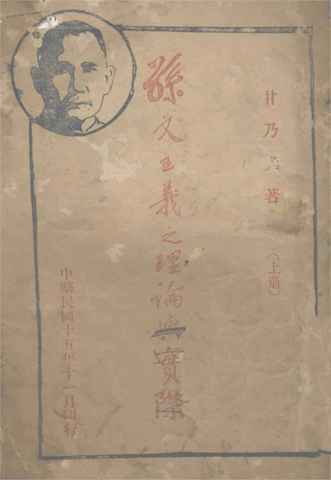 甘乃著 (上篇)
孫文主義之理論與實際
中華民國十五年十一月